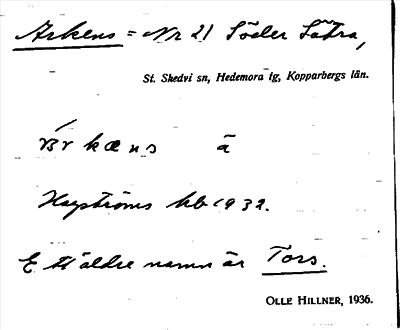 Arkens = Nr 21 Söder Sätra,
St. Skedvi sn, Hedemora tg, Kopparbergs län.
kæns ä
Hagströms hb 1932.
Ett äldre namn är Tors.
OLLE HILLNER, 1936.